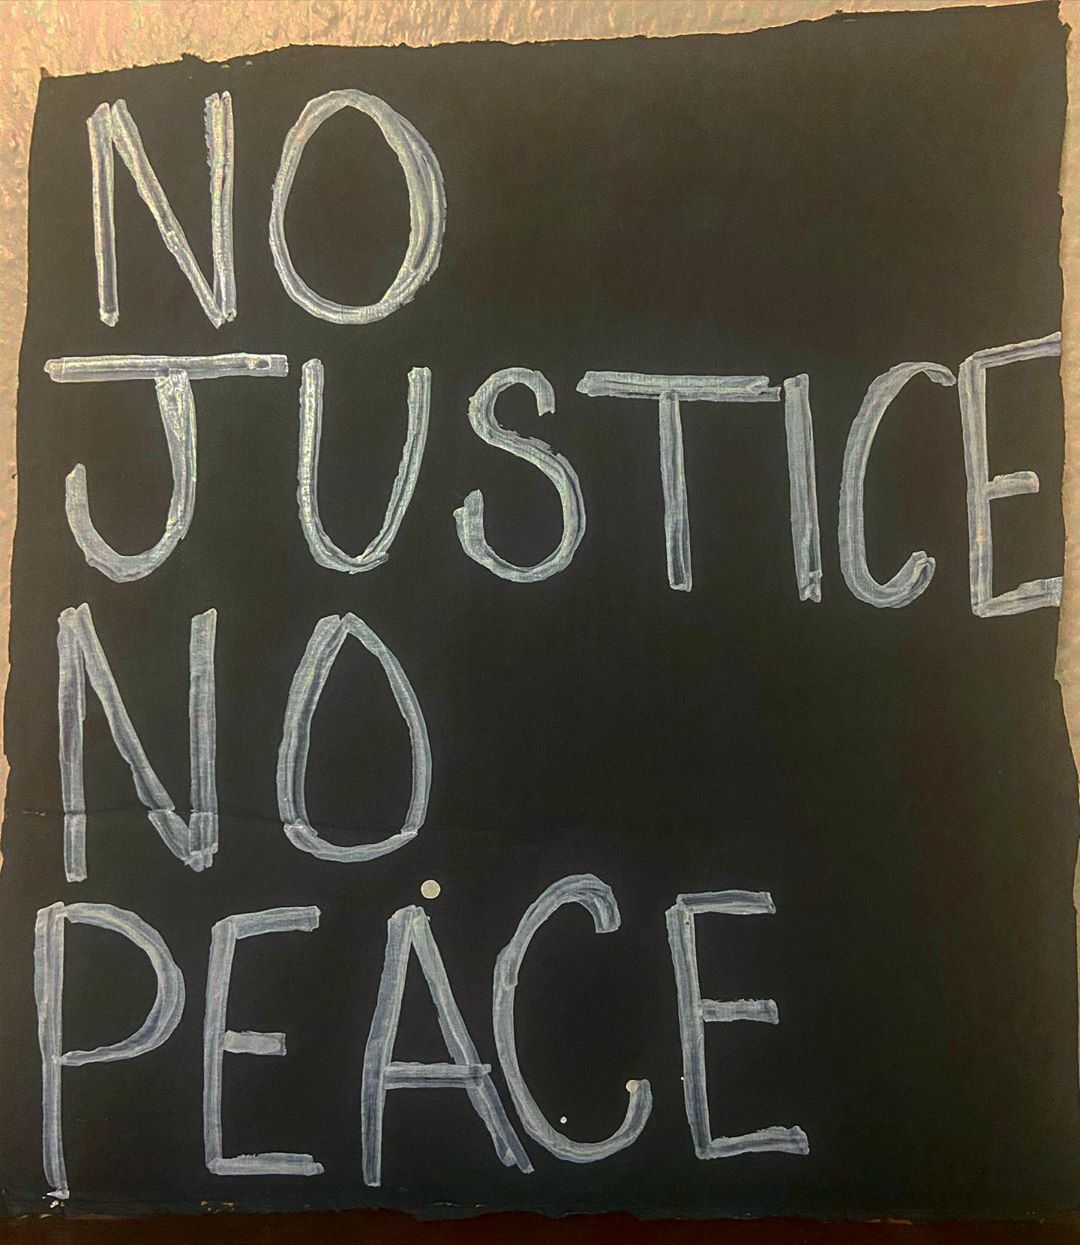 NO
JUSTICE
NO
PEACE